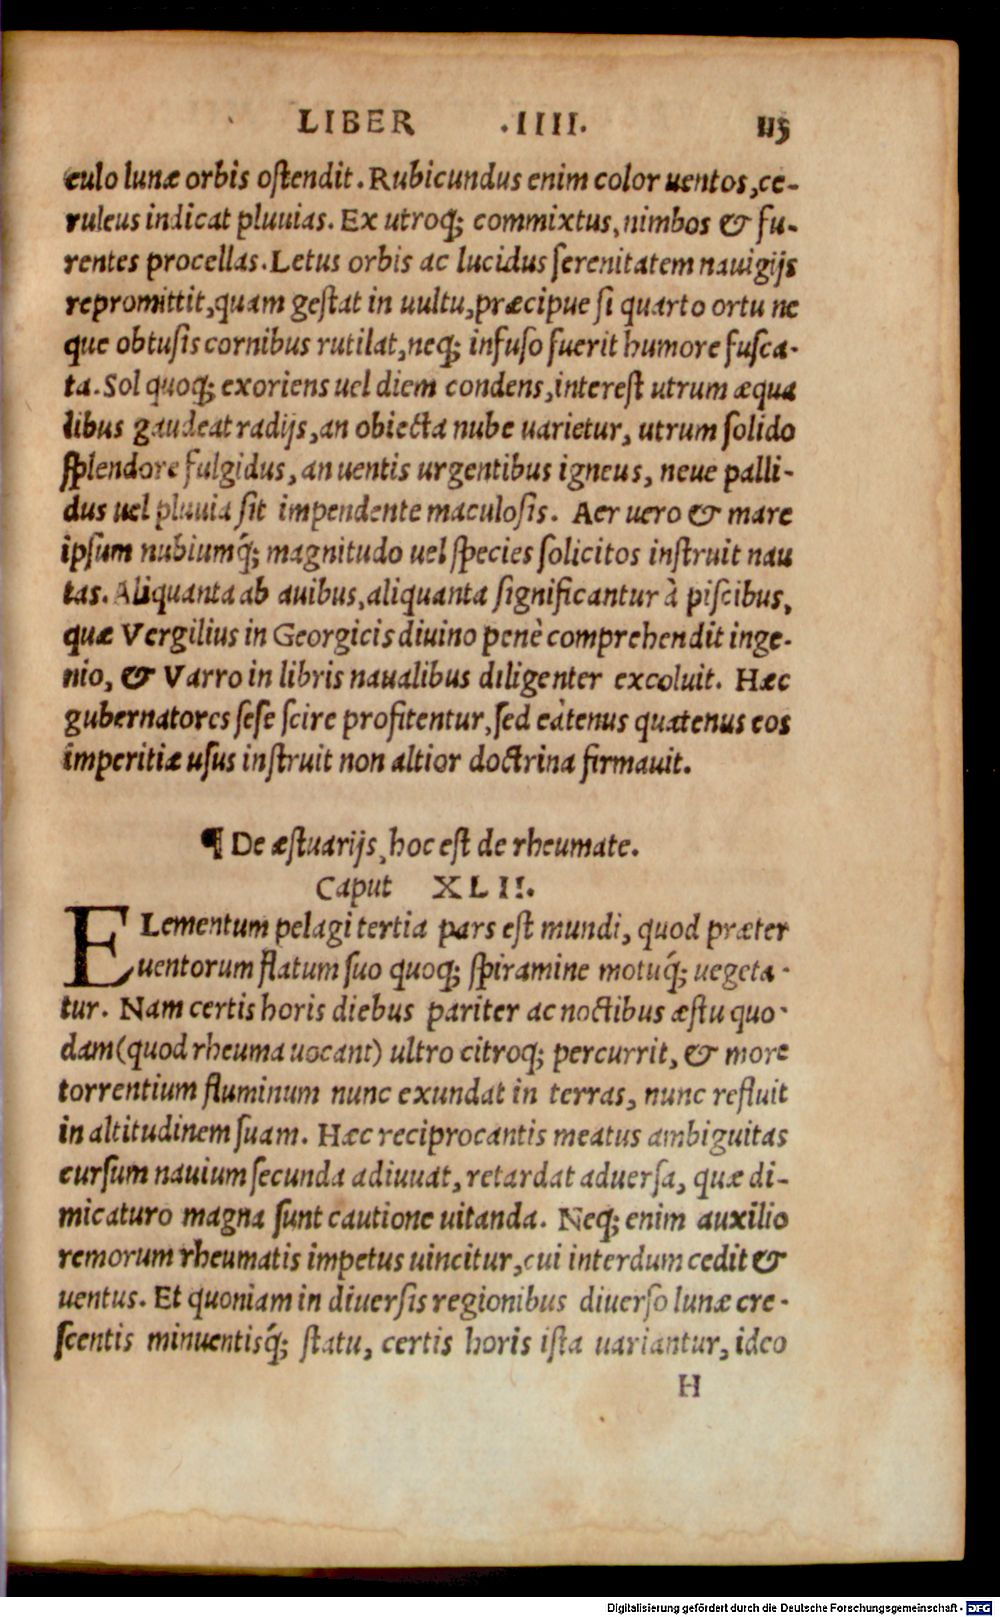 LIBER .IIII. 113
culo lunæ orbis ostendit. Rubicundus enim color uentos, ce-
ruleus indicat pluuias. Ex utroq; commixtus, nimbos & fu-
rentes procellas. Letus orbis ac lucidus serenitatem nauigijs
repromittit, quam gestat in uultu, præcipue si quarto ortu ne
que obtusis cornibus rutilat, neq; infuso fuerit humore fusca-
ta. Sol quoq; exoriens uel diem condens, interest utrum æqua
libus gaudeat radijs, an obiecta nube uarietur, utrum solido
splendore fulgidus, an uentis urgentibus igneus, neue palli-
dus uel pluuia sit impendente maculosis. Aer uero & mare
ipsum nubiumq́; magnitudo uel species solicitos instruit nau
tas. Aliquanta ab auibus, aliquanta significantur à piscibus,
quæ Vergilius in Georgicis diuino penè comprehendit inge-
nio, & Varro in libris naualibus diligenter excoluit. Hæc
gubernatores sese scire profitentur, sed eàtenus quatenus eos
imperitiæ usus instruit non altior doctrina firmauit.
¶ De æstuarijs, hoc est de rheumate.
Caput XLII.
ELementum pelagi tertia pars est mundi, quod præter
uentorum flatum suo quoq; spiramine motuq́; uegeta-
tur. Nam certis horis diebus pariter ac noctibus æstu quo-
dam (quod rheuma uocant) ultro citroq; percurrit, & more
torrentium fluminum nunc exundat in terras, nunc refluit
in altitudinem suam. Hæc reciprocantis meatus ambiguitas
cursum nauium secunda adiuuat, retardat aduersa, quæ di-
micaturo magna sunt cautione uitanda. Neq; enim auxilio
remorum rheumatis impetus uincitur, cui interdum cedit &
uentus. Et quoniam in diuersis regionibus diuerso lunæ cre-
scentis minuentisq́; statu, certis horis ista uariantur, ideo
H
Digitalisierung gefördert durch die Deutsche Forschungsgemeinschaft - DFG